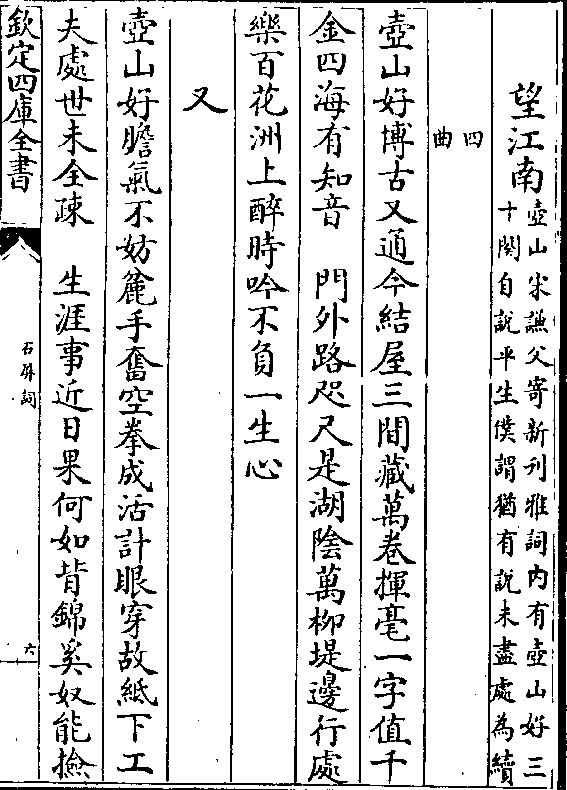 望江南壺山宋謙父寄新刊雅詞内有壺山好三
十闋自説平生僕謂猶有説未盡處為續
四
曲
壺山好博古又通今結屋三間藏萬卷揮毫一字值千
金四海有知音　門外路咫尺是湖陰萬柳堤邊行處
樂百花洲上醉時吟不負一生心
又
壺山好膽氣不妨麄手奮空拳成活計眼穿故紙下工
夫處世未全疎　生涯事近日果何如背錦奚奴能撿
欽定四庫全書
石屏詞
六